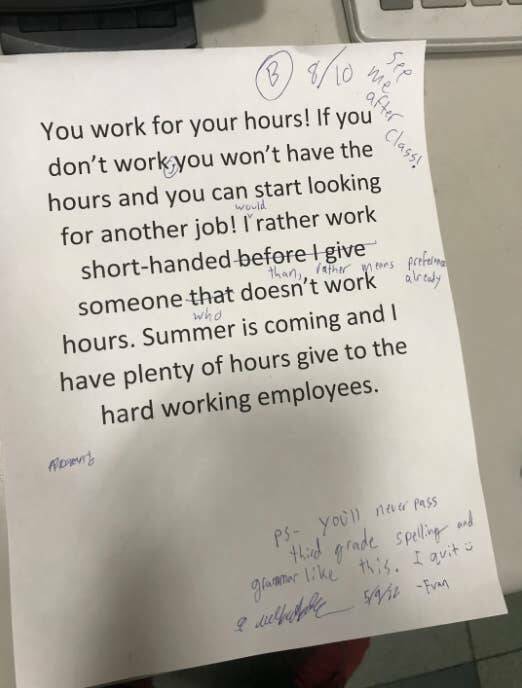 B 8/10 see
me
after
class!
You work for your hours! If you
don't work, you won't have the
hours and you can start looking
would
for another job! I rather work
short-handed before I give
than, rather means preference
already
someone that doesn't work
who
hours. Summer is coming and I
have plenty of hours give to the
hard working employees.
PS- you'll never pass
third grade spelling and
grammar like this. I quit
-Evan